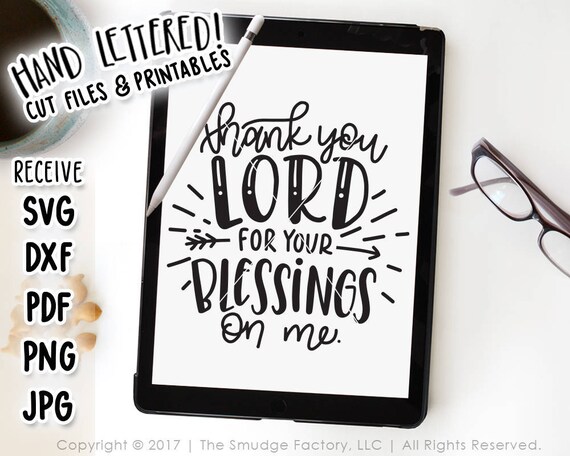 HAND LETTERED!
CUT FILES & PRINTABLES
RECEIVE
SVG
DXF
PDF
PNG
JPG
thank you
LORD
FOR YOUR
BLESSINGS
on me.
Copyright © 2017 | The Smudge Factory, LLC | All Rights Reserved.